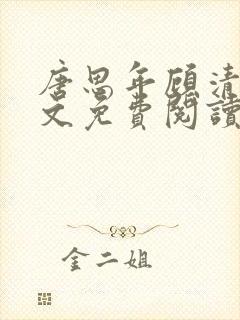 唐思年顾清
文免費閱讀
金二姐